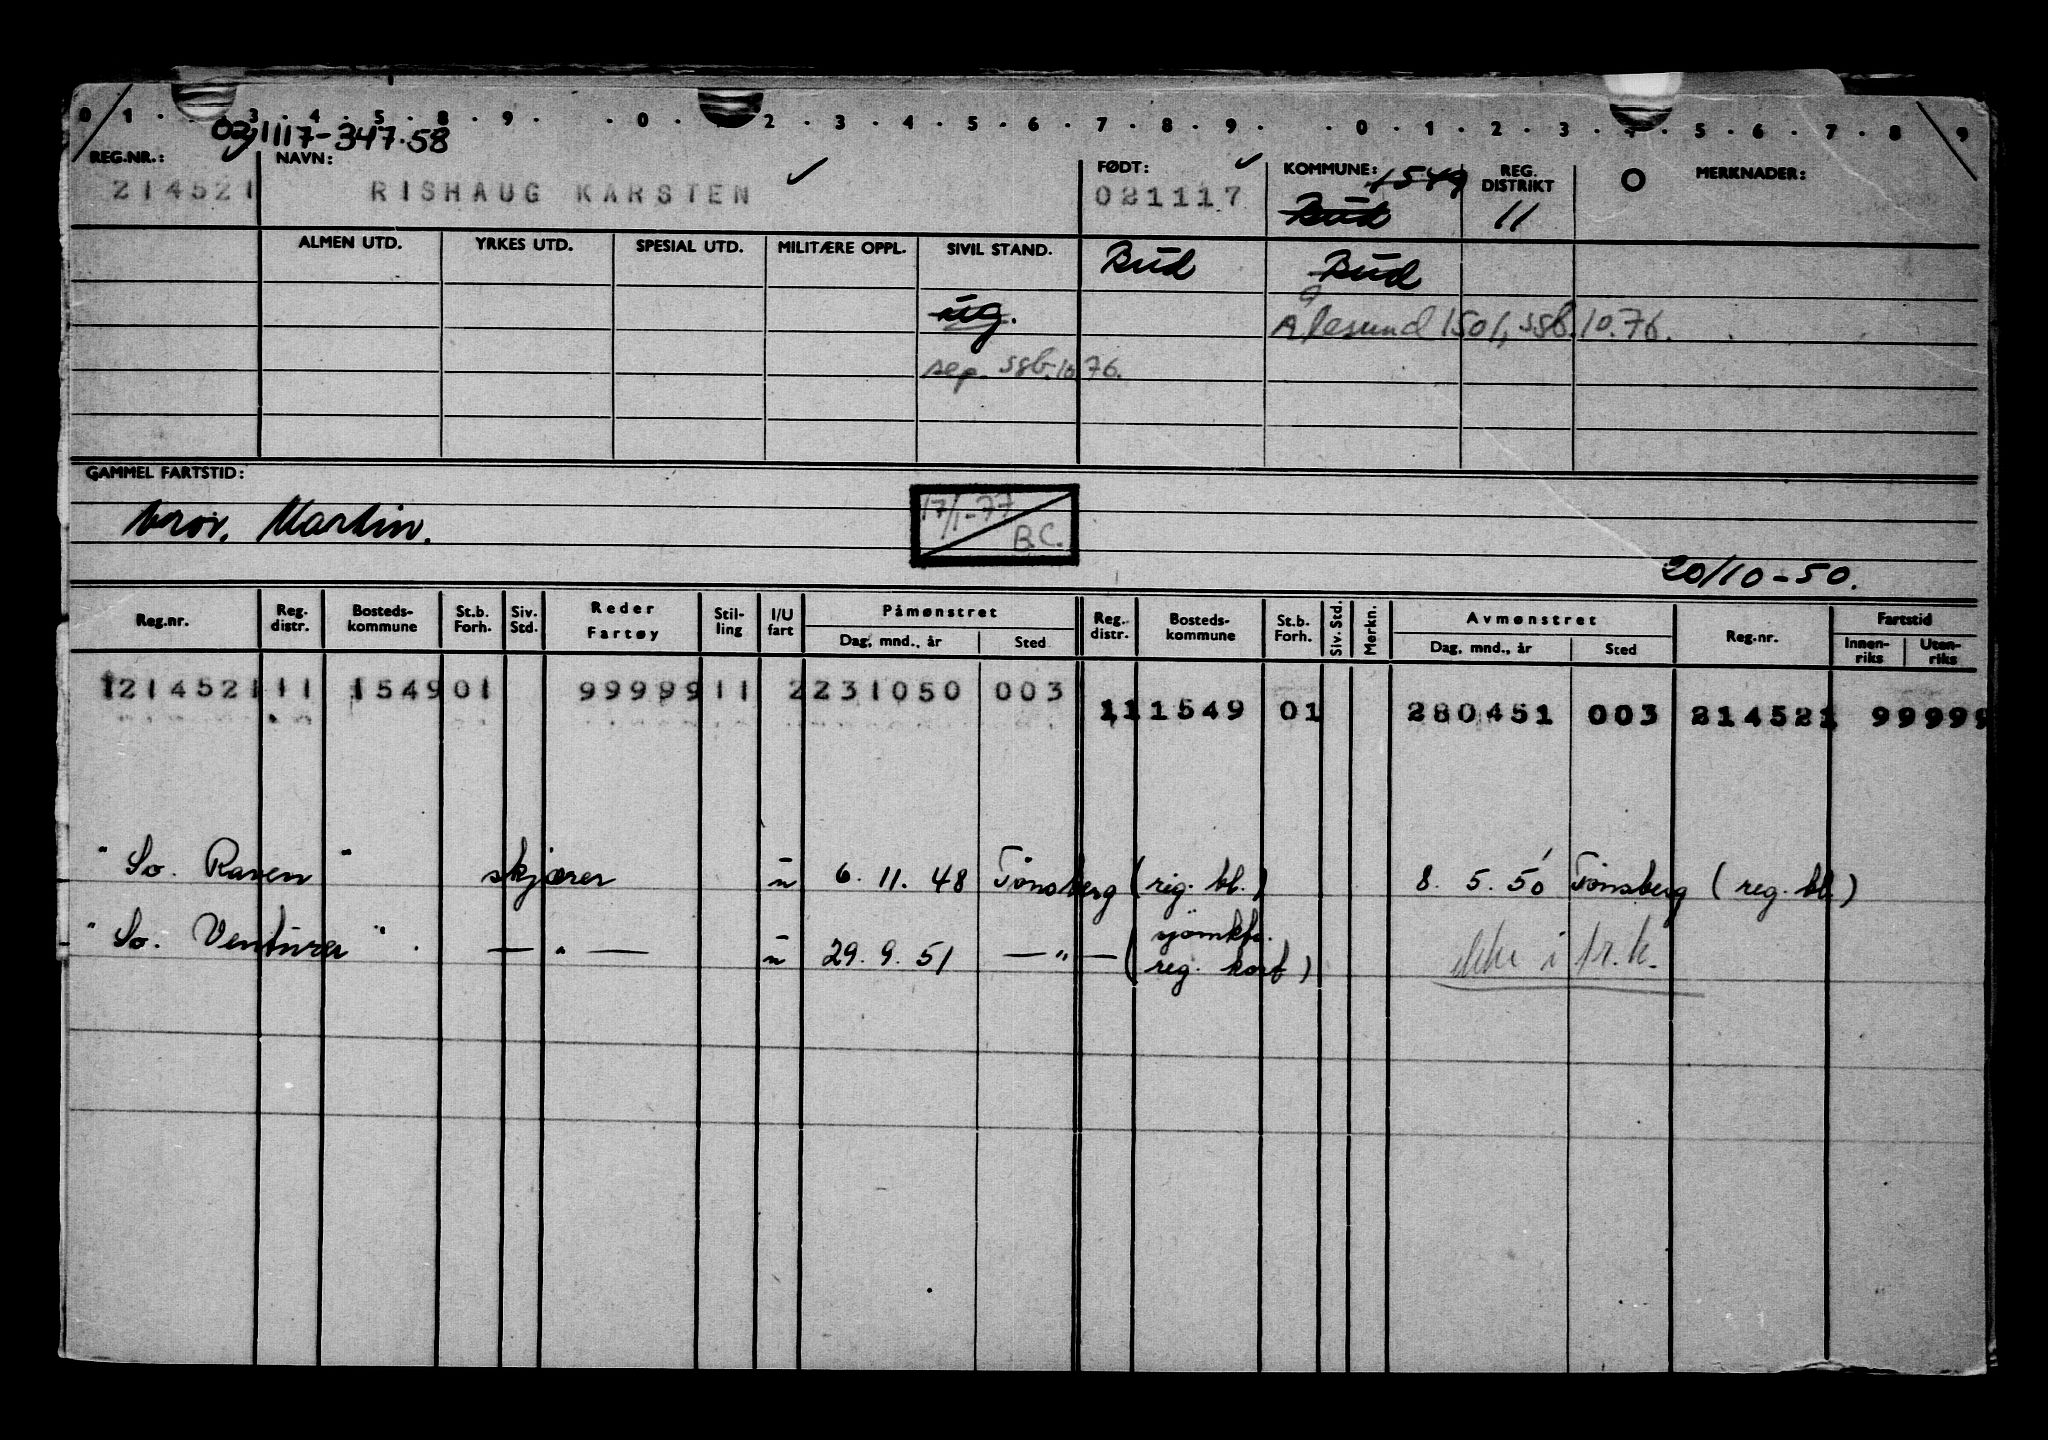 0 1 . . 3 . 4 . 5 . 8 . 9 . . 0 . 2 . 3 . 4 . 5 . 6 . 7 . 8 . 9 . . 0 . 1 . 2 . 3 . 4 . 5 . 6 . 7 . 8 . 9
021117-347.58
REG.NR.: NAVN: FØDT: KOMMUNE: 1549 REG. DISTRIKT MERKNADER:
214521 RISHAUG KARSTEN 021117 Bud 11
ALMEN UTD. YRKES UTD. SPESIAL UTD. MILITÆRE OPPL. SIVIL STAND. Bud Bud
ug. Ålesund 1501, ssb. 10.76.
sep. ssb. 10 76.
GAMMEL FARTSTID:
17/1-77
B.C.
Martin.
20/10-50.
Reg.nr. Reg. distr. Bosteds-kommune St.b. Forh. Siv. Std. Reder Fartøy Stil-ling I/U fart Påmønstret Dag, mnd., år Sted Reg. distr. Bosteds-kommune St.b. Forh. Siv. Std. Merkn. Avmønstret Dag, mnd., år Sted Reg.nr. Fartstid Innen-riks Uten-riks
1214521 11 1549 01 99999 11 2 231050 003
11 1549 01 280451 003 214521 99999
" So. Raven " skjærer u 6. 11. 48 Tönsberg (rig. bl.) 8. 5. 50 Tönsberg (reg. bl.)
" So. Venturer " . — " — u 29. 9. 51 — " — (sjömktr. reg. kort) ikke i fr.k.